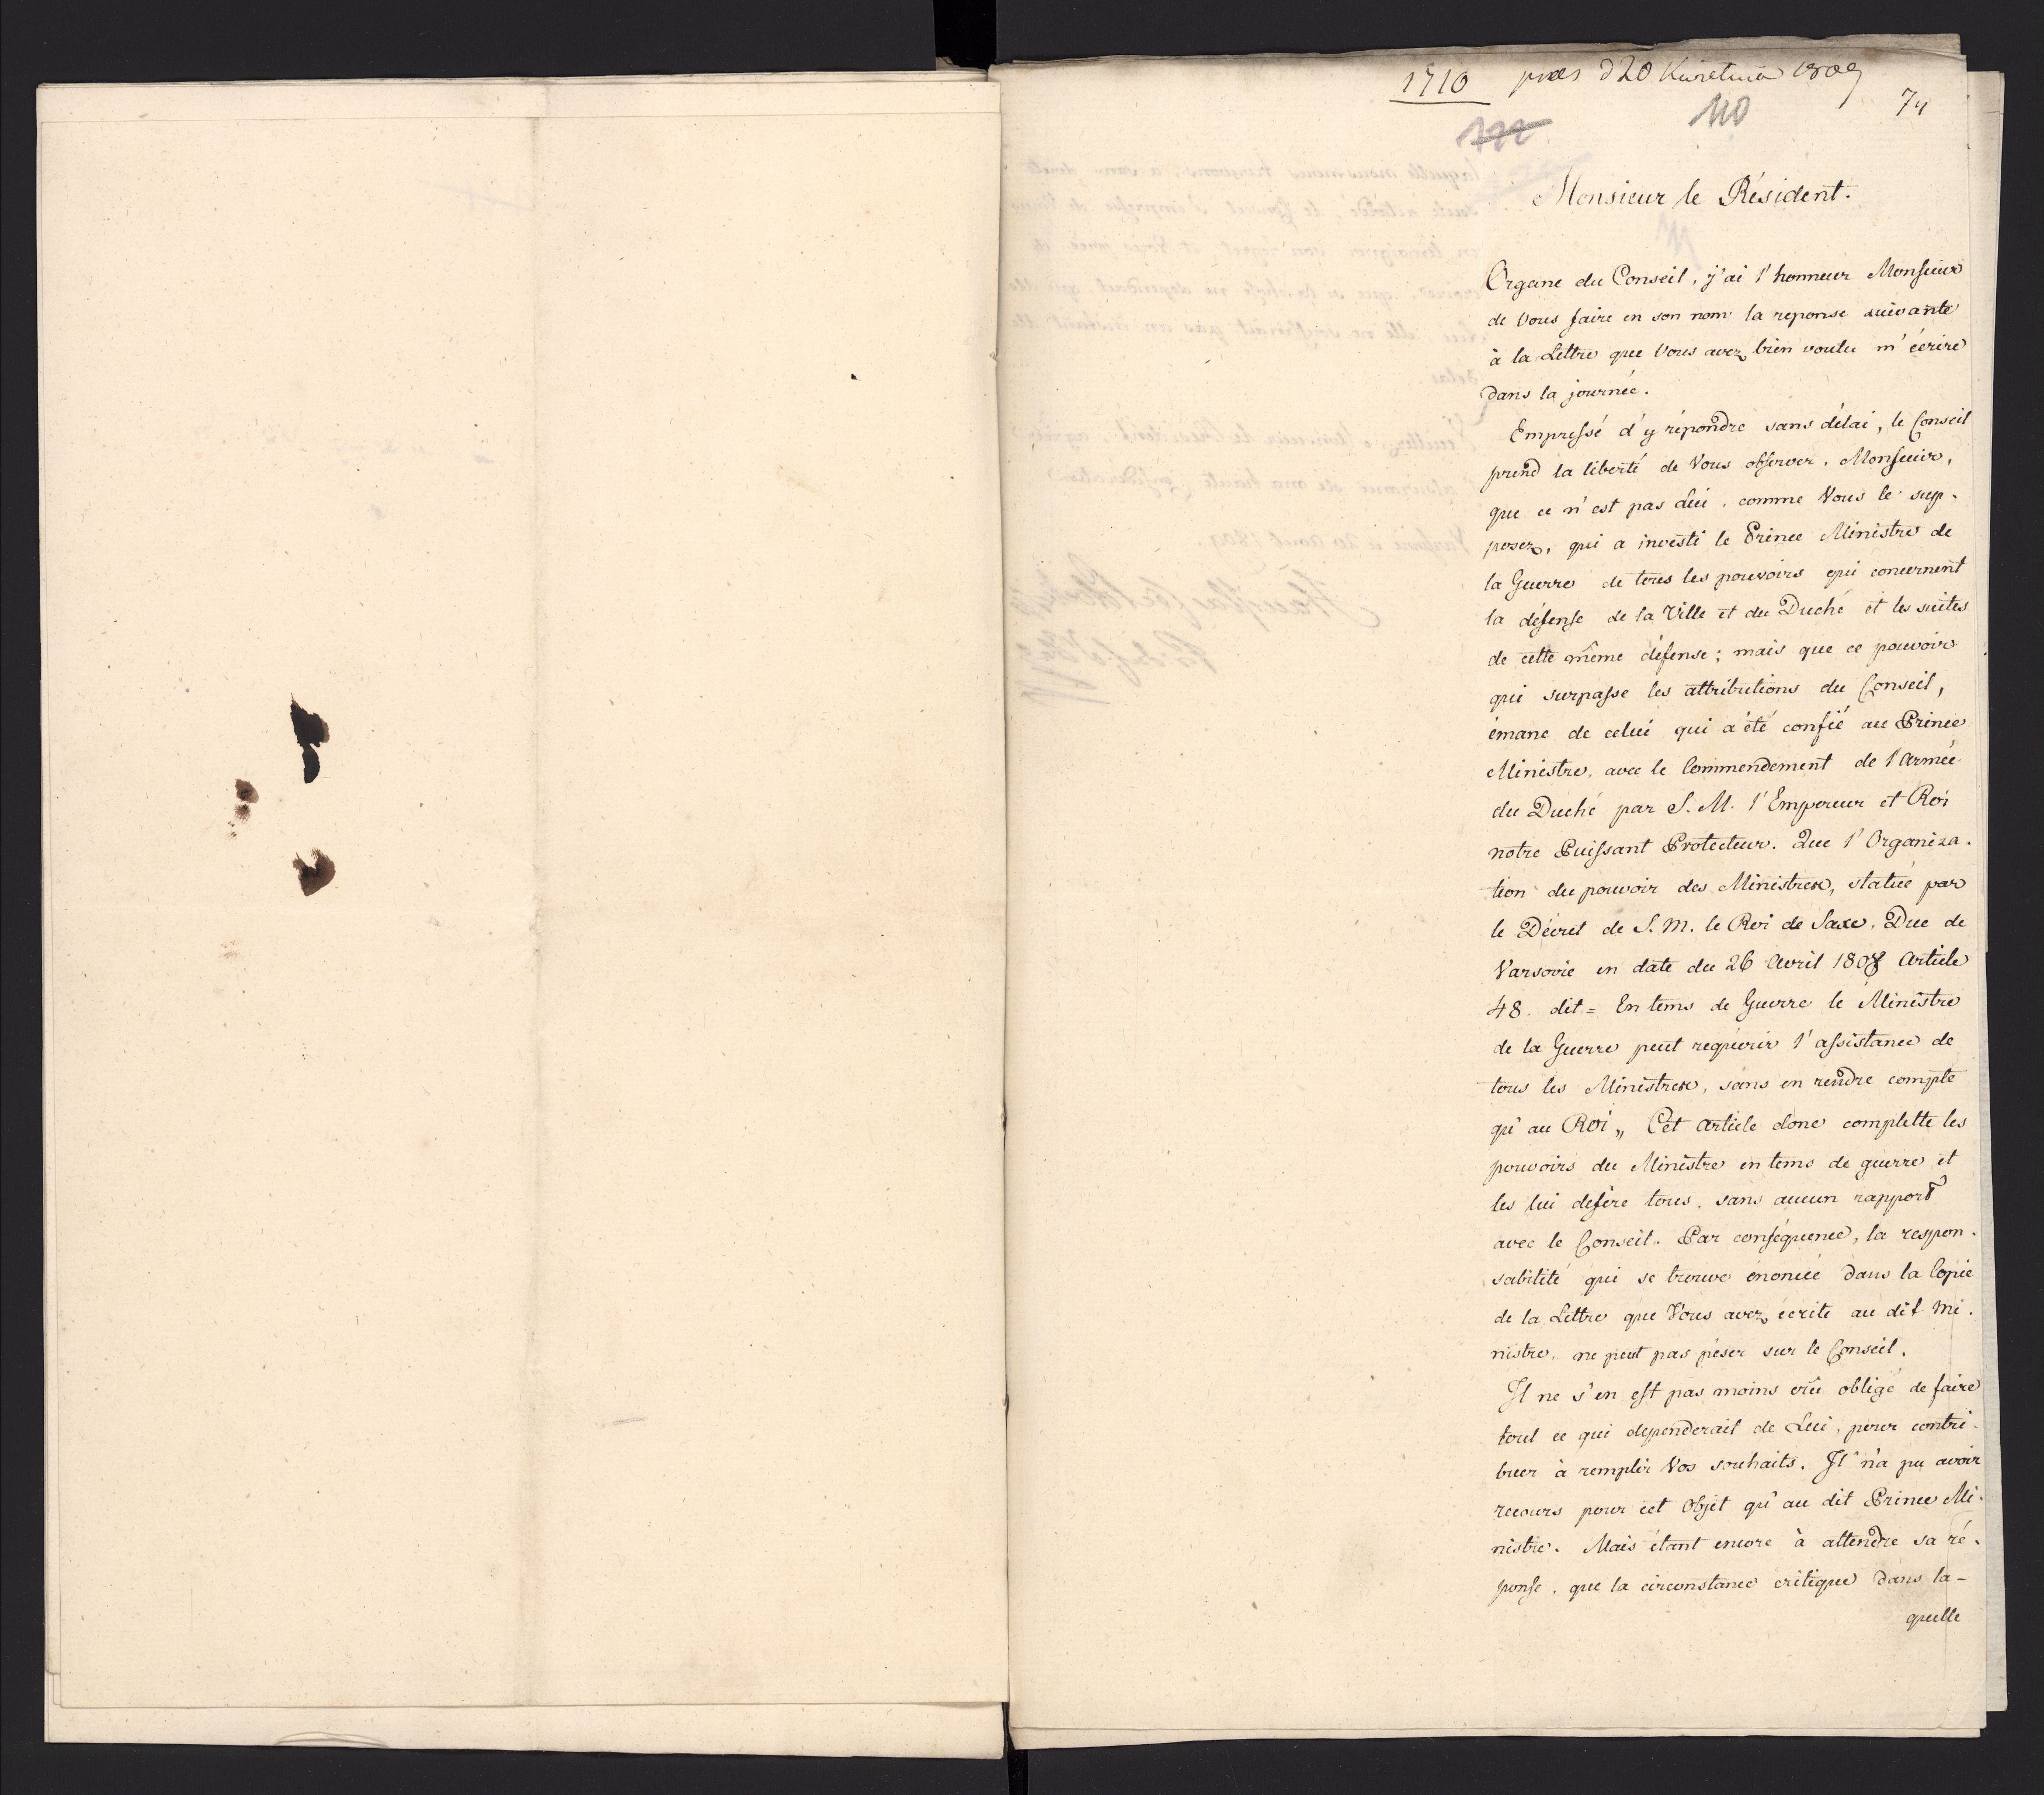 1710 praes d 20 Kwietnia 1809
110 74
Monsieur le Résident.
Organe du Conseil, j'ai l'honneur Monsieur
de Vous faire en son nom la reponse suivante
à la Lettre que Vous avez bien voulu m'écrire
dans la journée.
Empressé d'y répondre sans délai, le Conseil
prend la liberté de Vous observer, Monsieur,
que ce n'est pas Lui, comme Vous le sup-
posez, qui a investi le Prince Ministre de
la Guerre de tous les pouvoirs qui concernent
la défense de la Ville et du Duché et les suites
de cette même défense; mais que ce pouvoir
qui surpasse les attributions du Conseil,
émane de celui qui a été confié au Prince
Ministre, avec le Commendement de l'Armée
du Duché par S. M. l'Empereur et Roi
notre Puissant Protecteur. Que l'Organiza-
tion du pouvoir des Ministres, statuée par
le Décret de S. M. le Roi de Saxe, Duc de
Varsovie en date du 26 Avril 1808 Article
48. dit = En tems de Guerre le Ministre
de la Guerre peut requérir l'assistance de
tous les Ministres, sans en rendre compte
qu'au Roi „ Cet Article donc complette les
pouvoirs du Ministre en tems de guerre et
les lui defère tous, sans aucun rapport
avec le Conseil. Par conséquence, la respon-
sabilité qui se trouve énoncée dans la Copie
de la Lettre que Vous avez écrite au dit Mi-
nistre, ne peut pas péser sur le Conseil.
Il ne s'en est pas moins crû obligé de faire
tout ce qui dependerait de Lui, pour contri-
buer à remplir Vos souhaits. Il n'a pu avoir
recours pour cet Objet qu'au dit Prince Mi-
nistre. Mais étant encore à attendre sa ré-
ponse, que la circonstance critique dans la-
quelle